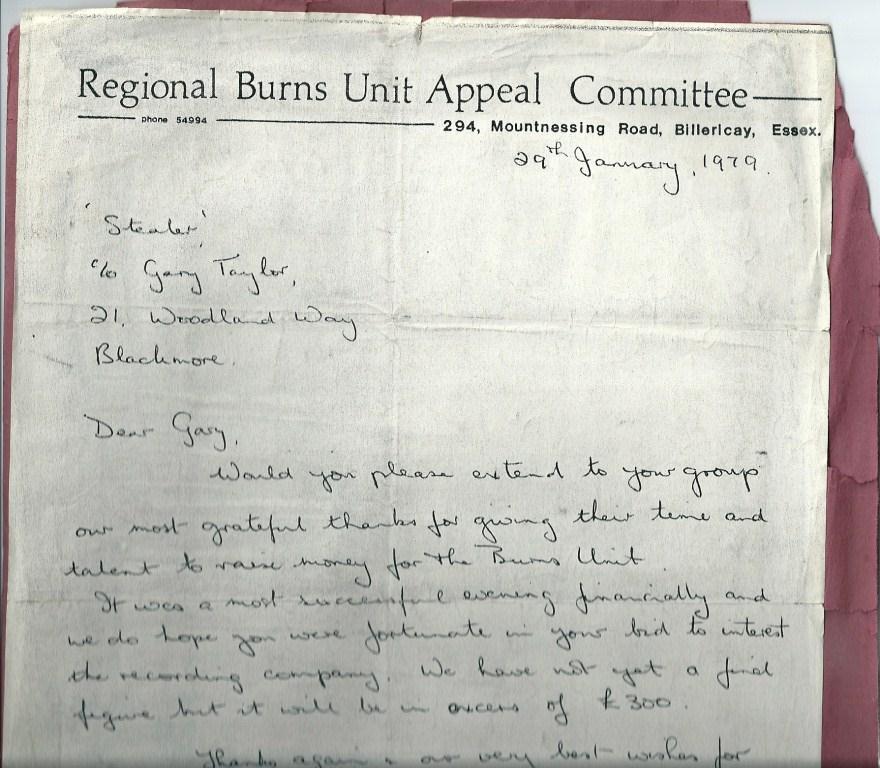 Regional Burns Unit Appeal Committee
phone 54994
294, Mountnessing Road, Billericay, Essex.
29th January, 1979.
'Stealer'
c/o Gary Taylor,
21, Woodland Way
Blackmore.
Dear Gary,
Would you please extend to your group
our most grateful thanks for giving their time and
talent to raise money for the Burns Unit.
It was a most successful evening financially and
we do hope you were fortunate in your bid to interest
the recording company. We have not yet a final
figure but it will be in excess of £300.
Thanks again & our very best wishes for